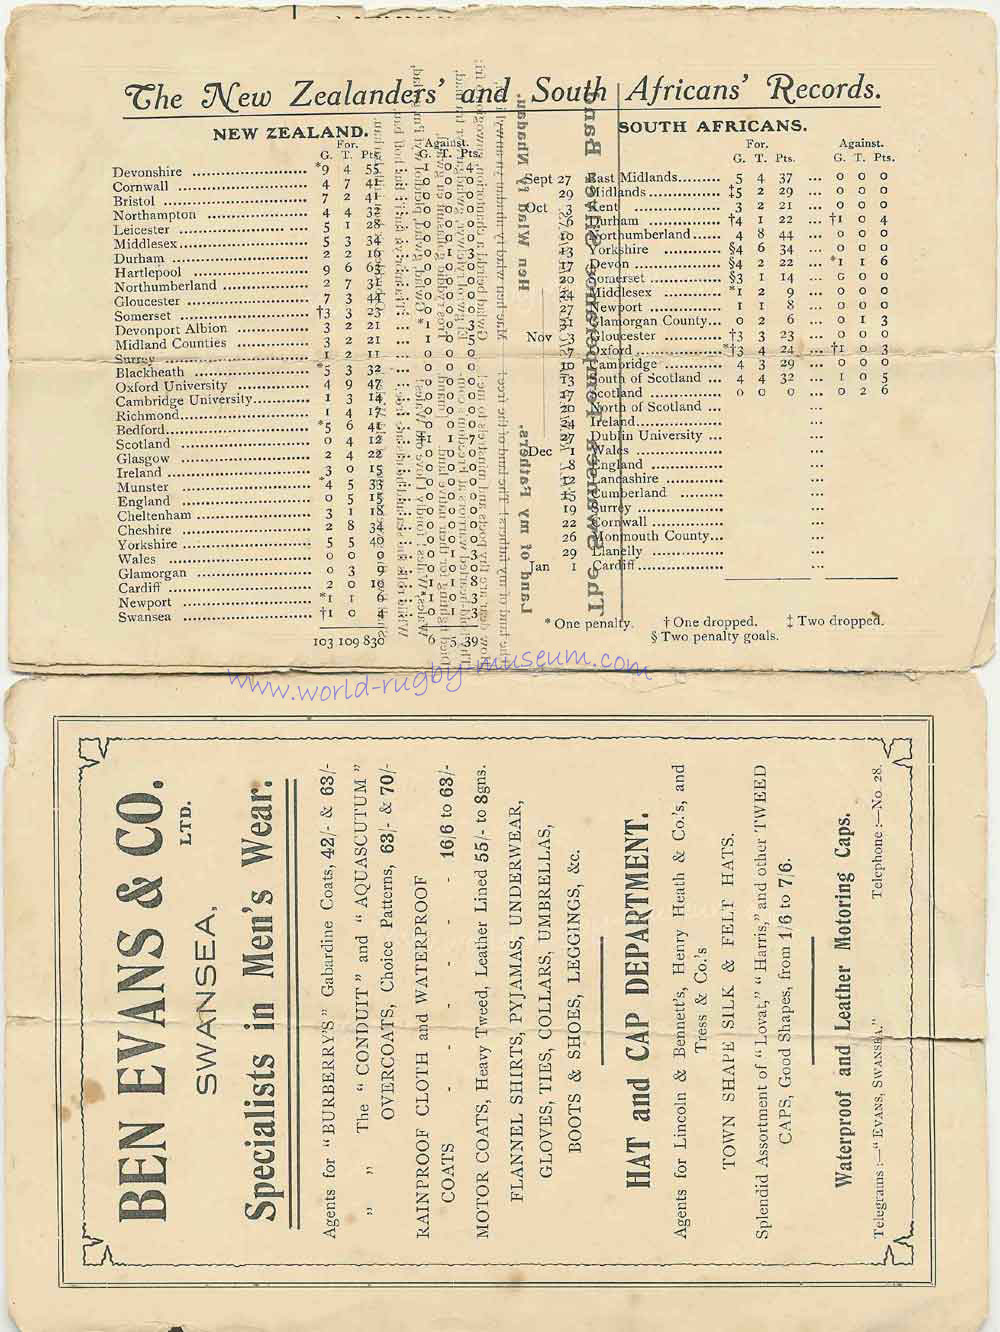 The New Zealanders' and South Africans' Records.
NEW ZEALAND.
For. Against.
G. T. Pts. G. T. Pts.
Devonshire *9 4 55 ... 1 0 4
Cornwall 4 7 41 ... 0 0 0
Bristol 7 2 41 ... 0 0 0
Northampton 4 4 32 ... 0 0 0
Leicester 5 1 28 ... 0 0 0
Middlesex 5 3 34 ... 0 0 0
Durham 2 2 16 ... 0 1 3
Hartlepool 9 6 63 ... 0 0 0
Northumberland 2 7 31 ... 0 0 0
Gloucester 7 3 44 ... 0 0 0
Somerset †3 3 23 ... 0 0 0
Devonport Albion 3 2 21 ... *1 0 3
Midland Counties 3 2 21 ... 1 0 5
Surrey 1 2 11 ... 0 0 0
Blackheath *5 3 32 ... 0 0 0
Oxford University 4 9 47 ... 0 0 0
Cambridge University 1 3 14 ... 0 0 0
Richmond 1 4 17 ... 0 0 0
Bedford *5 6 41 ... 0 0 0
Scotland 0 4 12 ... 1 1 7
Glasgow 2 4 22 ... 0 0 0
Ireland 3 0 15 ... 0 0 0
Munster *4 5 33 ... 0 0 0
England 0 5 15 ... 0 0 0
Cheltenham 3 1 18 ... 0 0 0
Cheshire 2 8 34 ... 0 0 0
Yorkshire 5 5 40 ... 0 0 0
Wales 0 0 0 ... 0 1 3
Glamorgan 0 3 9 ... 0 0 0
Cardiff 2 0 10 ... 1 1 8
Newport *1 1 6 ... 1 0 3
Swansea †1 0 4 ... 0 1 3
103 109 830 6 5 39
SOUTH AFRICANS.
For. Against.
G. T. Pts. G. T. Pts.
Sept 27 East Midlands 5 4 37 ... 0 0 0
29 Midlands ‡5 2 29 ... 0 0 0
Oct 3 Kent 3 2 21 ... 0 0 0
6 Durham †4 1 22 ... †1 0 4
10 Northumberland 4 8 44 ... 0 0 0
13 Yorkshire §4 6 34 ... 0 0 0
17 Devon §4 2 22 ... *1 1 6
20 Somerset §3 1 14 ... 0 0 0
24 Middlesex *1 2 9 ... 0 0 0
27 Newport 1 1 8 ... 0 0 0
31 Glamorgan County... 0 2 6 ... 0 1 3
Nov 3 Gloucester †3 3 23 ... 0 0 0
7 Oxford *†3 4 24 ... †1 0 3
10 Cambridge 4 3 29 ... 0 0 0
13 South of Scotland ... 4 4 32 ... 1 0 5
17 Scotland 0 0 0 ... 0 2 6
20 North of Scotland ... ...
24 Ireland ... ...
27 Dublin University ... ...
Dec 1 Wales ... ...
8 England ... ...
12 Lancashire ... ...
15 Cumberland ...
19 Surrey ... ...
22 Cornwall ... ...
26 Monmouth County... ...
29 Llanelly ... ...
Jan 1 Cardiff ... ...
* One penalty. † One dropped. ‡ Two dropped.
§ Two penalty goals.
The Swansea Temperance Silver Band
Land of my Fathers.
Hen Wlad fy Nhadau.
www.world-rugby-museum.com
BEN EVANS & CO.
LTD.
SWANSEA,
Specialists in Men's Wear.
Agents for "BURBERRY'S" Gabardine Coats, 42/- & 63/-
" " The "CONDUIT" and "AQUASCUTUM"
OVERCOATS, Choice Patterns, 63/- & 70/-
RAINPROOF CLOTH and WATERPROOF
COATS - - - - - - 16/6 to 63/-
MOTOR COATS, Heavy Tweed, Leather Lined 55/- to 8gns.
FLANNEL SHIRTS, PYJAMAS, UNDERWEAR,
GLOVES, TIES, COLLARS, UMBRELLAS,
BOOTS & SHOES, LEGGINGS, &c.
HAT and CAP DEPARTMENT.
Agents for Lincoln & Bennett's, Henry Heath & Co.'s, and
Tress & Co.'s
TOWN SHAPE SILK & FELT HATS.
Splendid Assortment of "Lovat," "Harris," and other TWEED
CAPS, Good Shapes, from 1/6 to 7/6.
Waterproof and Leather Motoring Caps.
Telegrams :—"EVANS, SWANSEA." Telephone :—No. 28.